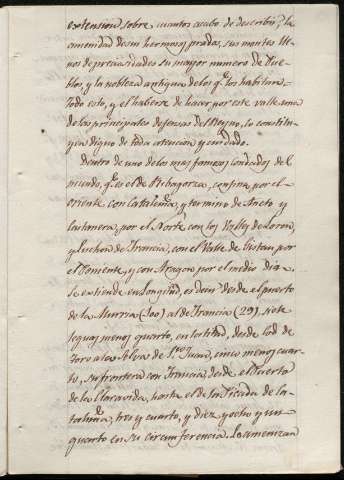 extension sobre cuantos acabo de describir; la
amenidad de sus hermosos prados, sus montes lle-
nos de preciosidades su mayor numero de Pue-
blos, y la nobleza antigua de los q.e los habitan.
todo esto, y el haberse de hacer por este valle una
de las principales defensas del Reyno, lo constitu-
ye digno de toda atencion y cuidado.
Dentro de uno de los mas famosos condados del
mundo, q.e es el de Ribagorza, confina por el
oriente con Cataluña, y termino de Aneto y
castanera, por el Norte con los Valles de Loron,
y Luchon de Francia, con el Valle de Gistau por
el Poniente, y con Aragon por el medio dia
Se entiende en Longitud, es decir desde el puerto
de la Murria (300) al de Francia (29), siete
leguas menos quarto, en latitud, desde Cod de
Toro a la Selva de S.n Juan, cinco menos cuar-
to, su frontera con Francia, desde el Puerto
de la Claravida, hasta el de la Picada de Ca-
taluña, tres y cuarto, y diez y ocho y un
quarto en su circumferencia. La amenizan